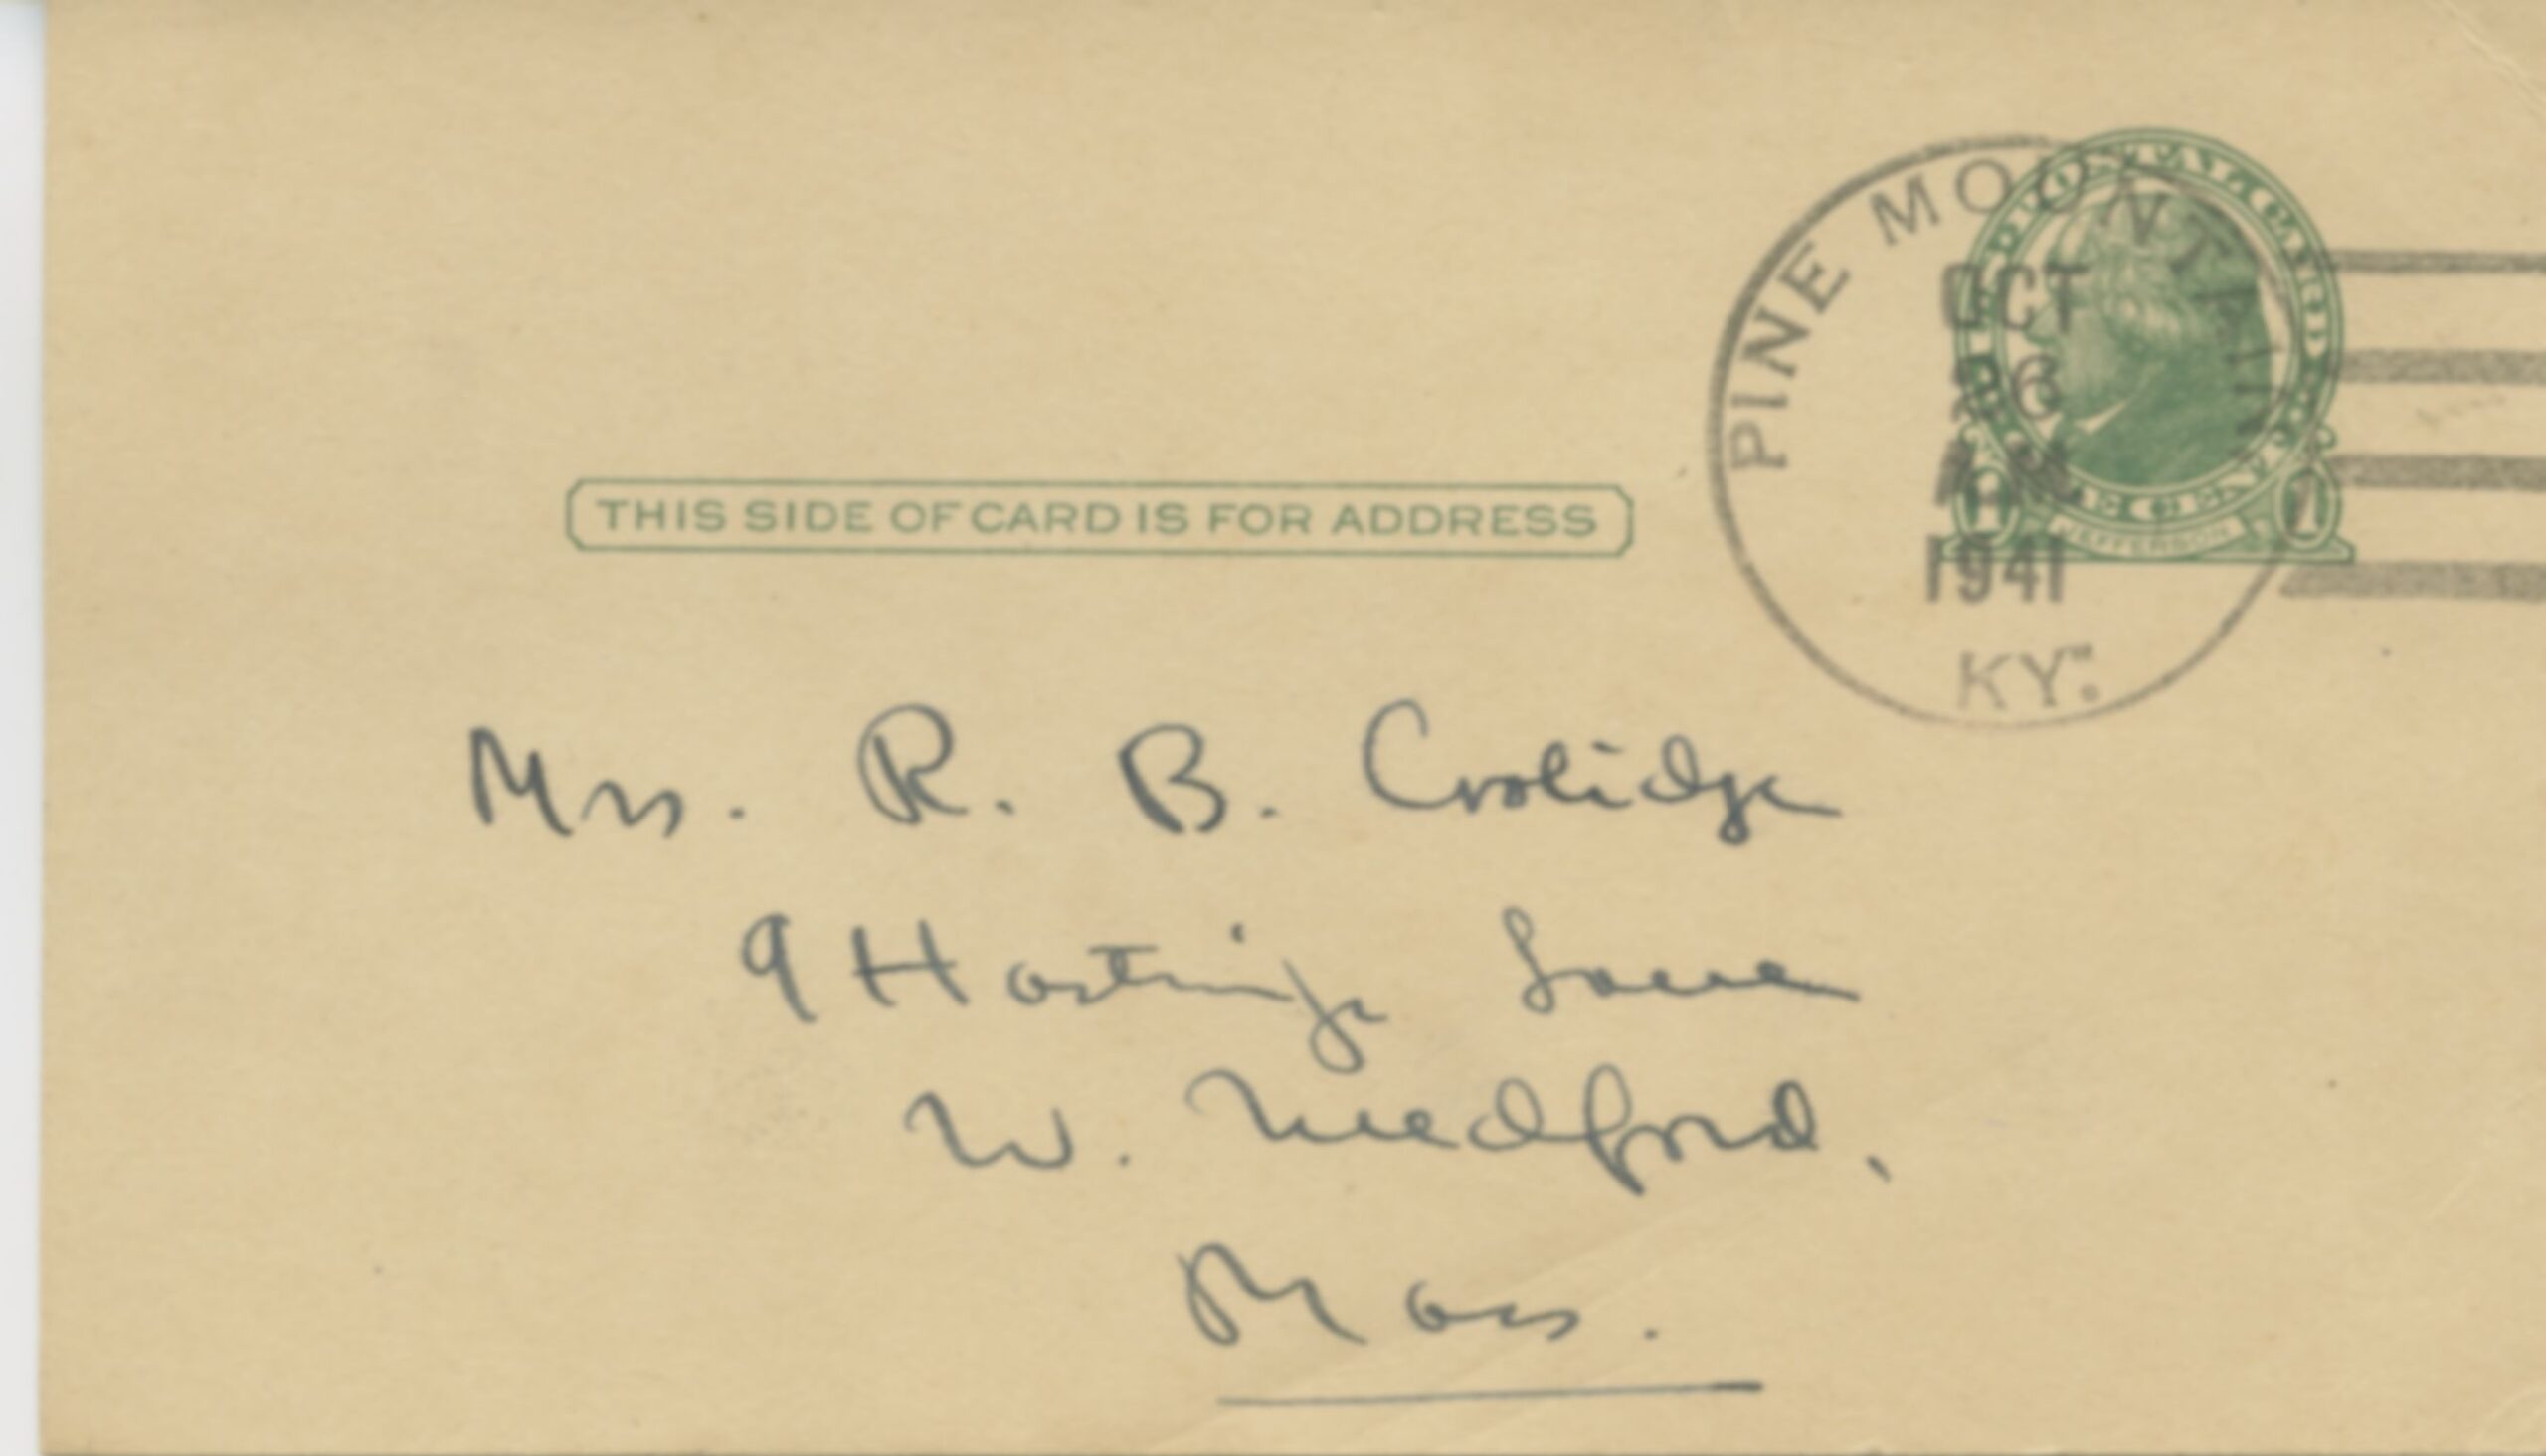 PINE MOUNTAIN
OCT
26
1941
KY.
U.S. POSTAL CARD
ONE CENT
1 1
JEFFERSON
THIS SIDE OF CARD IS FOR ADDRESS
Mrs. R. B. Coolidge
9 Hastings Lane
W. Medford,
Mass.